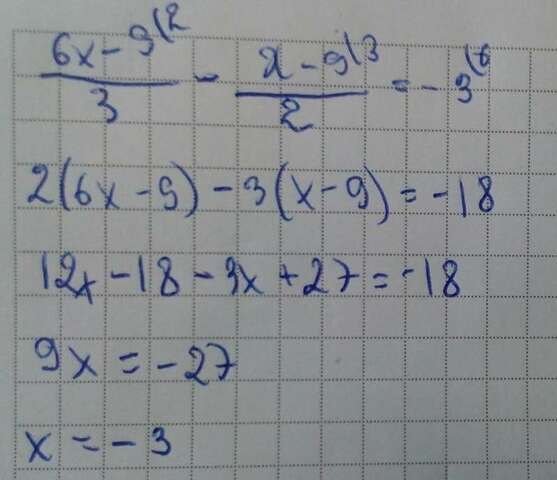 (6x - 9)/3 \2 - (x - 9)/2 \3 = -3 \6
2(6x - 9) - 3(x - 9) = -18
12x - 18 - 3x + 27 = -18
9x = -27
x = -3